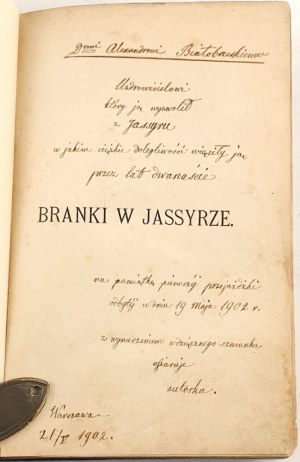 Drowi Alexandrowi Białobrzeskiemu
Uzdrowicielowi
który ją wyzwolił
z Jassyru
w jakim ciężkie dolegliwości więziły ją
przez lat dwanaście
BRANKI W JASSYRZE.
na pamiątkę pierwszej przejażdżki
odbytej w dniu 19 maja 1902 r.
z wynurzeniem wdzięcznego szacunku
ofiaruje
autorka.
Warszawa
21/V 1902.